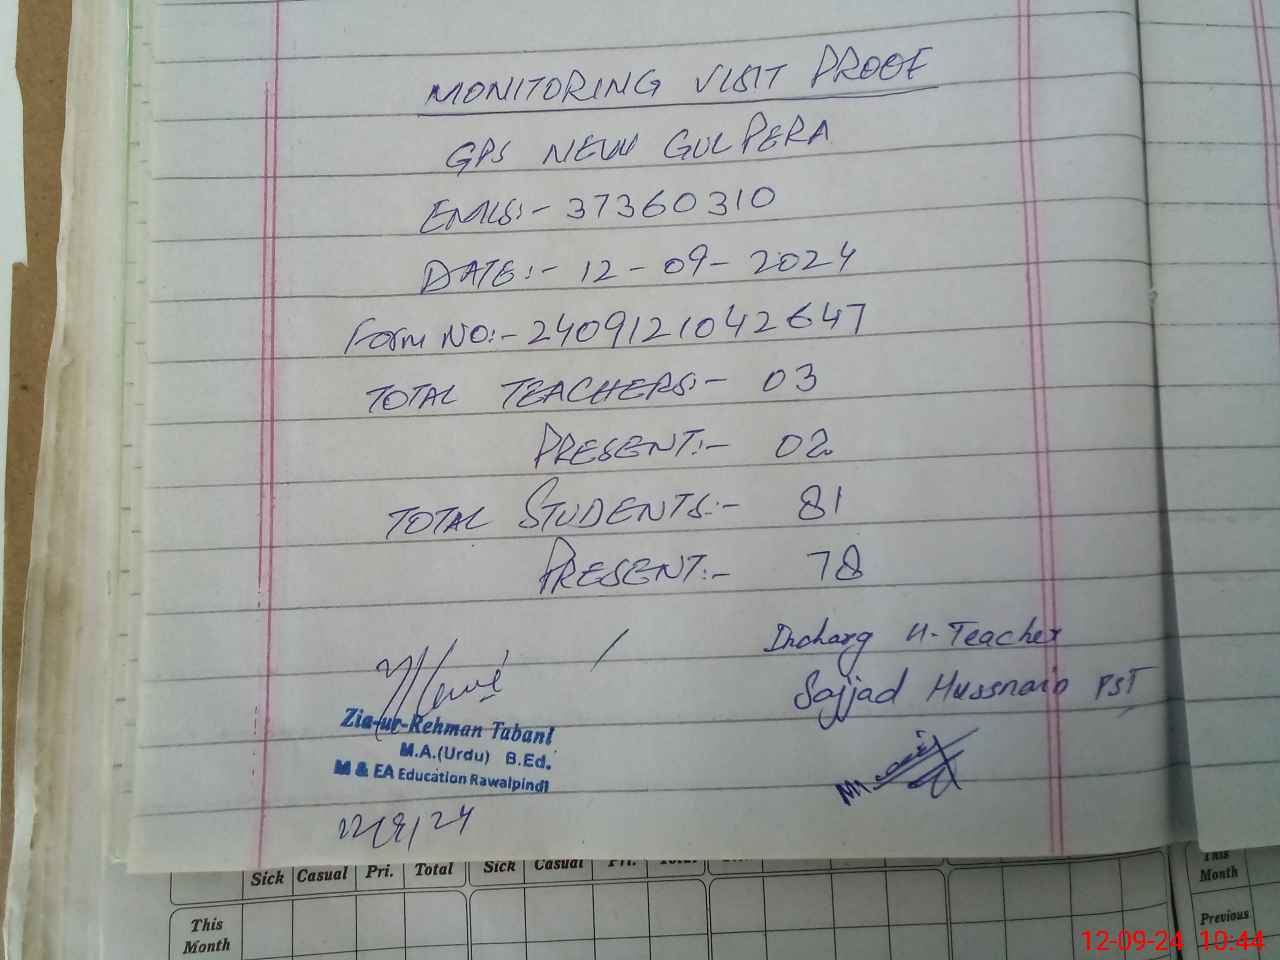 MONITORING VISIT PROOF
GPS NEW GULPERA
EMIS:- 37360310
DATE:- 12-09-2024
Form NO:- 2409121042647
TOTAL TEACHERS:- 03
PRESENT:- 02
TOTAL STUDENTS:- 81
PRESENT:- 78
Incharg H-Teacher
Sajjad Hussnain PST
Zia-ur-Rehman Tabani
M.A.(Urdu) B.Ed.
M & EA Education Rawalpindi
12/9/24
Sick Casual Pri. Total Sick Casual Pri. Total
This Month
This Month
Previous
12-09-24 10:44